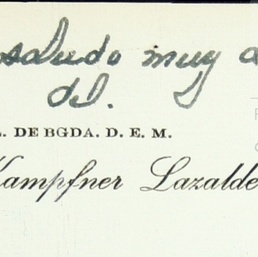 saludo muy a
del.
L. DE BGDA. D. E. M.
Kampfner Lazalde